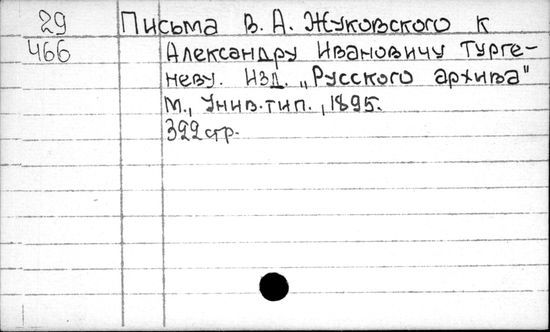 29 Письма В. А. Жуковского к
466 Александру Ивановичу Турге-
неву. Изд. „Русского архива"
М., Унив.тип., 1895.
322 стр.